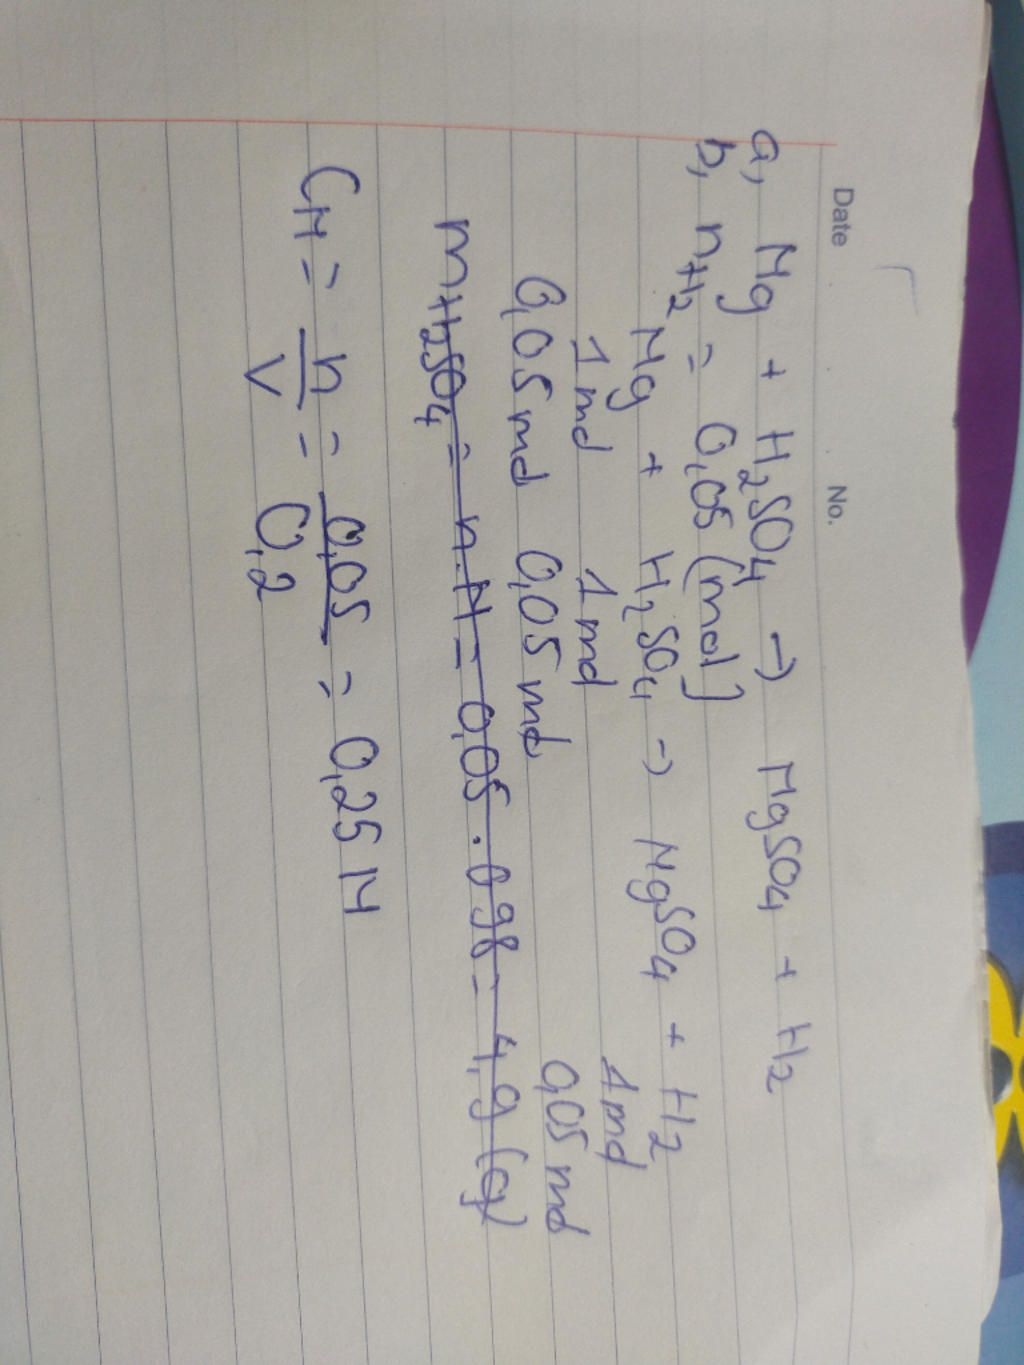 Date No.
a, Mg + H2SO4 → MgSO4 + H2
b, nH2 = 0,05 (mol)
Mg + H2SO4 → MgSO4 + H2
1 mol 1 mol 1 mol
0,05 mol 0,05 mol 0,05 mol
mH2SO4 = n.M = 0,05 . 098 = 4,9 (g)
CM = n/V = 0,05/0,2 = 0,25 M